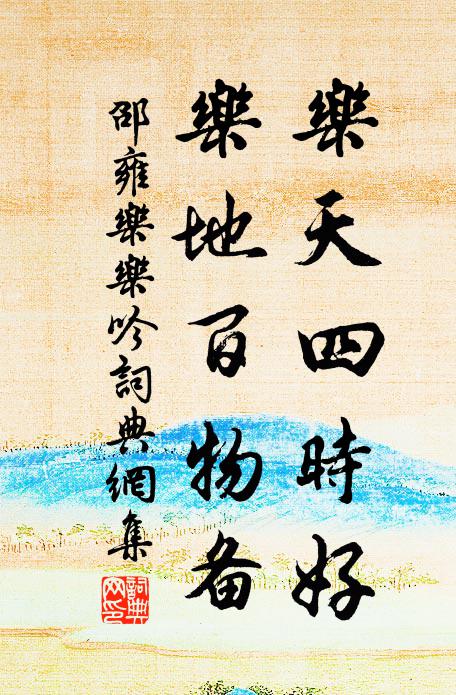 樂天四時好
樂地百物备
邵雍樂樂吟詞典網集
詞典